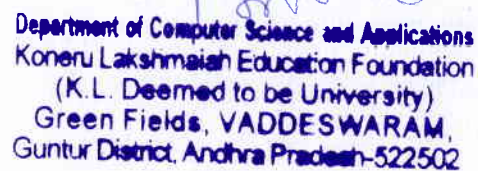 Department of Computer Science and Applications
Koneru Lakshmaiah Education Foundation
(K.L. Deemed to be University)
Green Fields, VADDESWARAM,
Guntur District, Andhra Pradesh-522502